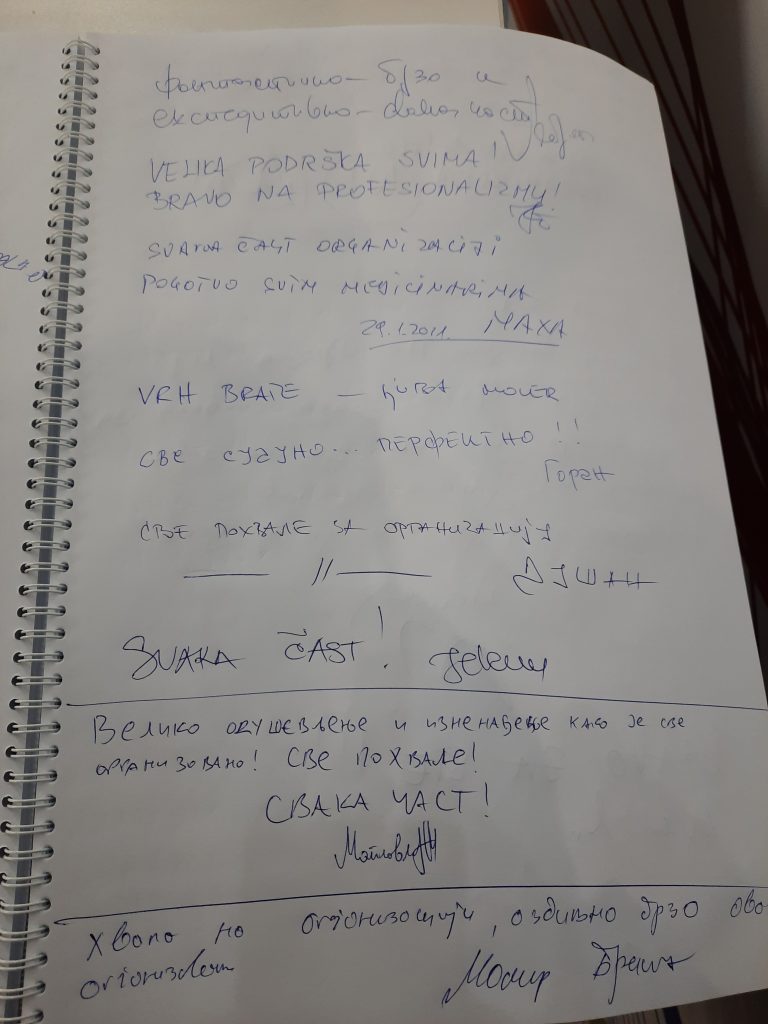 фантастично – брзо и
експедитивно – свака част
VELIKA PODRŠKA SVIMA!
BRAVO NA PROFESIONALIZMU!
SVAKA ČAST ORGANIZACIJI
POGOTVO SVIM MEDICINARIMA
MAXA
VRH BRATE –
СВЕ СУЗУНО... ПЕРФЕКТНО!!
Горан
СВЕ ПОХВАЛЕ ЗА ОРГАНИЗАЦИЈУ
— // — ДУШАН
SVAKA ČAST! Jelena
Велико одушевљење и изненађење како је све
организовано! СВЕ ПОХВАЛЕ!
СВАКА ЧАСТ!
Хвала на организацији, озбиљно брзо